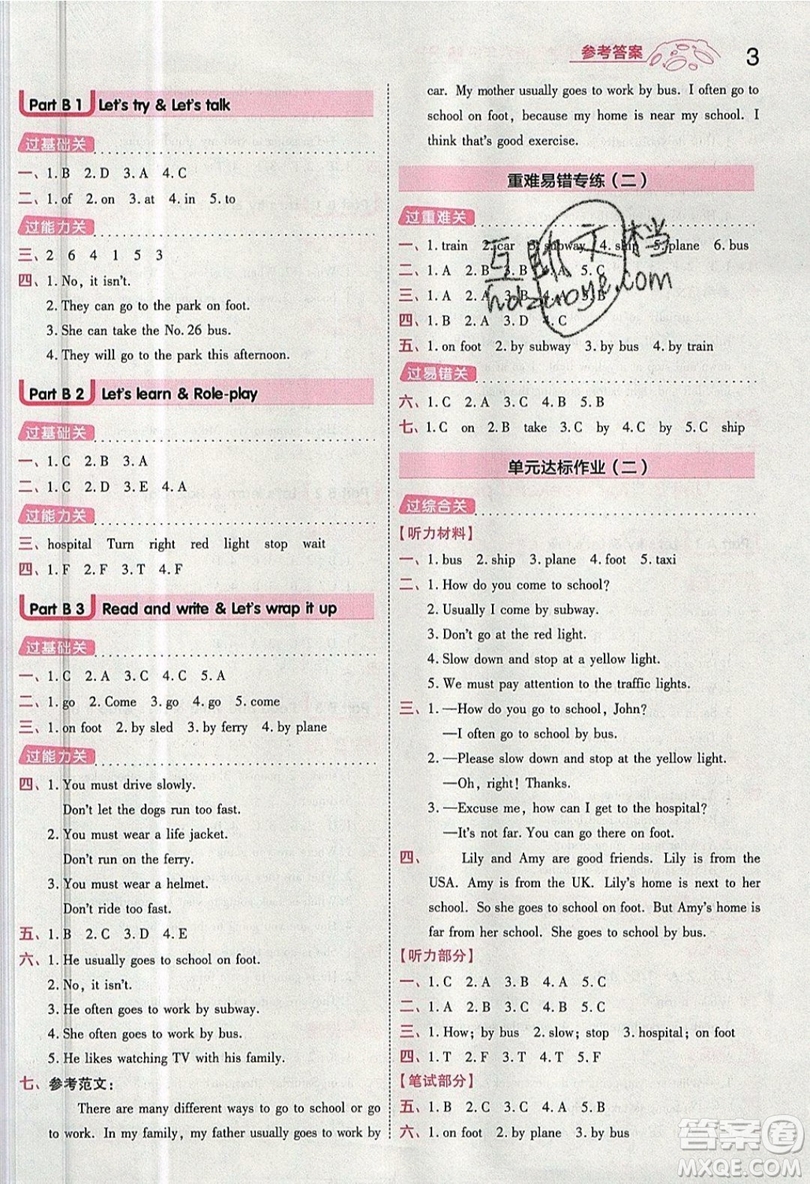 参考答案
3
Part B 1 Let's try & Let's talk
过基础关
一、1. B 2. D 3. A 4. C
二、1. of 2. on 3. at 4. in 5. to
过能力关
三、2 6 4 1 5 3
四、1. No, it isn't.
2. They can go to the park on foot.
3. She can take the No. 26 bus.
4. They will go to the park this afternoon.
Part B 2 Let's learn & Role-play
过基础关
一、1. C 2. B 3. A
二、1. C 2. B 3. D 4. E 5. A
过能力关
三、hospital Turn right red light stop wait
四、1. F 2. F 3. T 4. F
Part B 3 Read and write & Let's wrap it up
过基础关
一、1. C 2. D 3. B 4. E 5. A
二、1. go 2. Come 3. go 4. go 5. come
三、1. on foot 2. by sled 3. by ferry 4. by plane
过能力关
四、1. You must drive slowly.
Don't let the dogs run too fast.
2. You must wear a life jacket.
Don't run on the ferry.
3. You must wear a helmet.
Don't ride too fast.
五、1. B 2. C 3. D 4. E
六、1. He usually goes to school on foot.
2. No, it isn't.
3. He often goes to work by subway.
4. She often goes to work by bus.
5. He likes watching TV with his family.
七、参考范文：
There are many different ways to go to school or go
to work. In my family, my father usually goes to work by
car. My mother usually goes to work by bus. I often go to
school on foot, because my home is near my school. I
think that's good exercise.
重难易错专练（二）
过重难关
一、1. train 2. car 3. subway 4. ship 5. plane 6. bus
二、1. A 2. B 3. B 4. A 5. C
三、1. A 2. A 3. B 5. B
四、1. B 2. A 3. D 4. C
五、1. on foot 2. by subway 3. by bus 4. by train
过易错关
六、1. C 2. A 3. C 4. B 5. B
七、1. C on 2. B take 3. B by 4. C by 5. C ship
单元达标作业（二）
过综合关
【听力材料】
一、1. bus 2. ship 3. plane 4. foot 5. taxi
二、1. How do you come to school?
2. Usually I come by subway.
3. Don't go at the red light.
4. Slow down and stop at a yellow light.
5. We must pay attention to the traffic lights.
三、1. —How do you go to school, John?
—I often go to school by bus.
2. —Please slow down and stop at a yellow light.
—Oh, right! Thanks.
3. —Excuse me, how can I get to the hospital?
—It's not far. You can go there on foot.
四、Lily and Amy are good friends. Lily is from the
USA. Amy is from the UK. Lily's home is next to her
school. So she goes to school on foot. But Amy's home is
far from school. So she often goes to school by bus.
【听力部分】
一、1. C 2. A 3. B 4. A 5. C
二、1. C 2. A 3. B 4. B 5. A
三、1. How; by bus 2. slow; stop 3. hospital; on foot
四、1. T 2. F 3. F 4. T 5. F
【笔试部分】
五、1. B 2. C 3. D 4. B 5. A
六、1. on foot 2. by train 3. by bus 4. by plane
互助文档
hdzuoye.com
答案圈
MXQE.COM